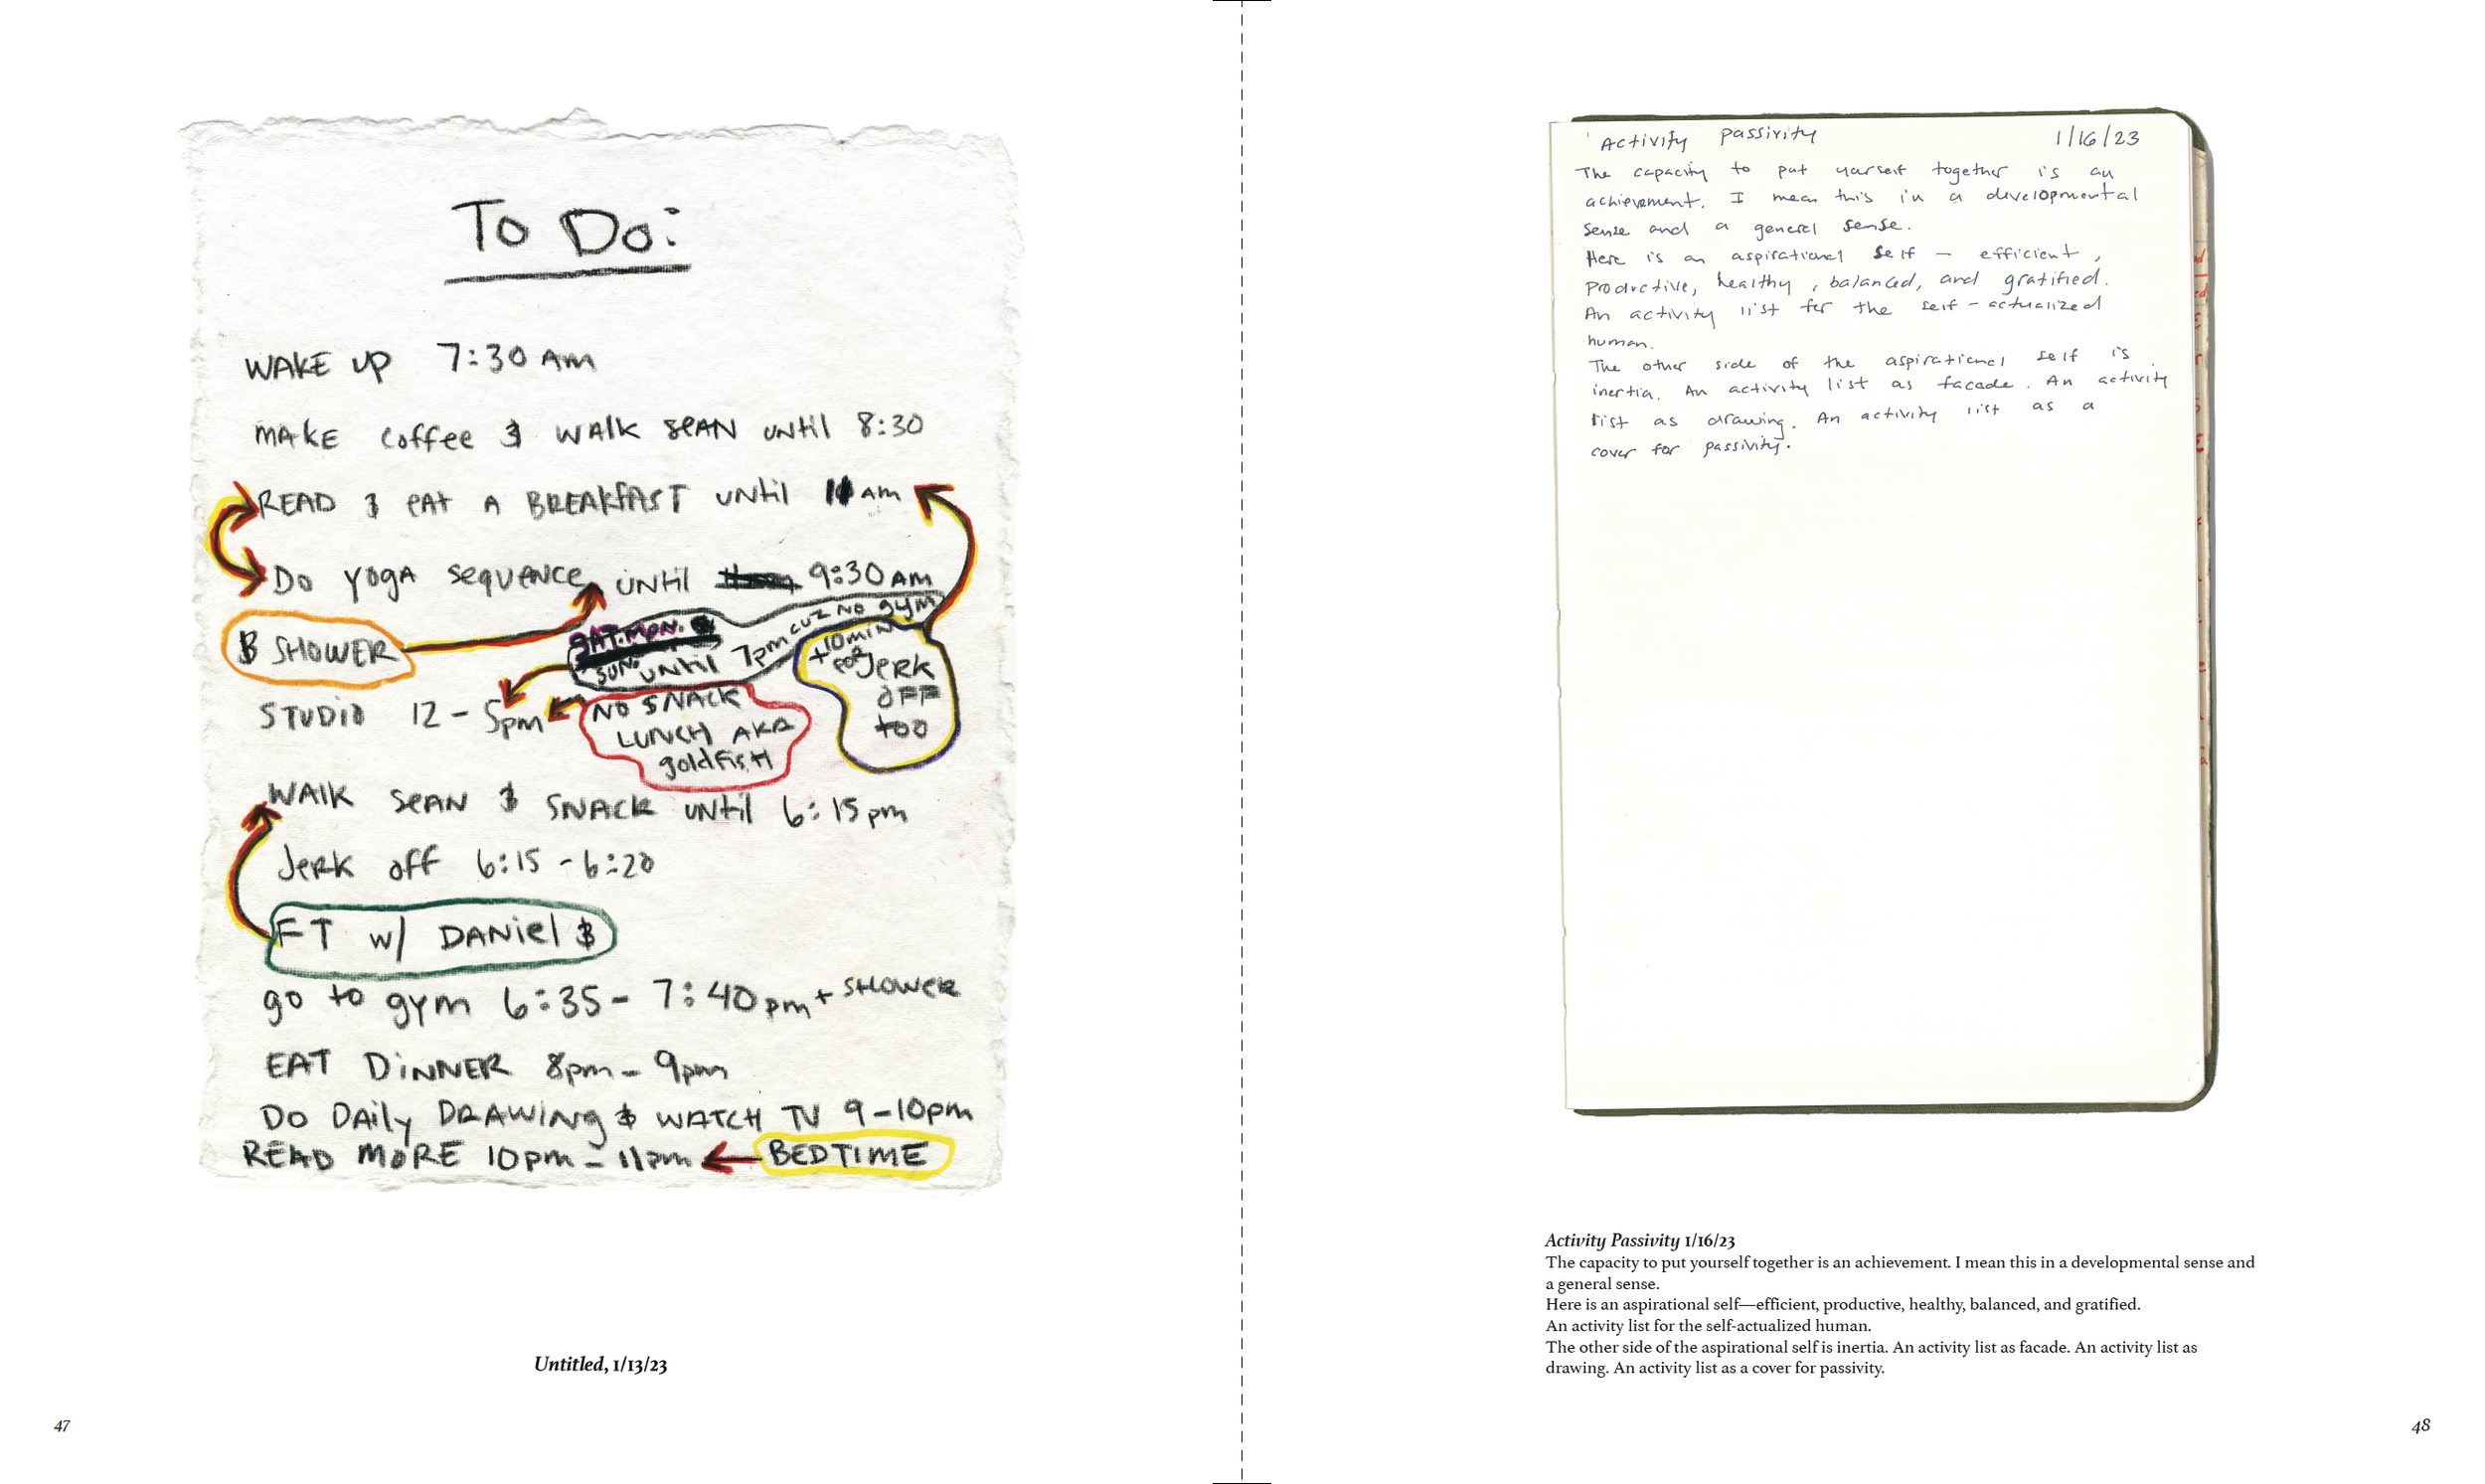 To Do:
WAKE UP 7:30 AM
MAKE COFFEE & WALK SEAN UNTIL 8:30
READ & EAT A BREAKFAST UNTIL AM
DO YOGA SEQUENCE UNTIL 9:30 AM
& SHOWER
SAT. MON.
SUN. UNTIL 7pm CUZ NO gYM
+10 MIN
FOR JERK
OFF
TOO
STUDIO 12 - 5pm
NO SNACK
LUNCH AKA
goldfish
WALK SEAN & SNACK UNTIL 6:15 pm
Jerk off 6:15 - 6:20
FT w/ DANIEL &
go to gym 6:35 - 7:40 pm + SHOWER
EAT DINNER 8pm - 9pm
DO DAILY DRAWING & WATCH TV 9-10pm
READ MORE 10pm - 11pm BEDTIME
Untitled, 1/13/23
47
Activity passivity 1/16/23
The capacity to put yourself together is an
achievement. I mean this in a developmental
sense and a general sense.
Here is an aspirational self - efficient,
productive, healthy, balanced, and gratified.
An activity list for the self-actualized
human.
The other side of the aspirational self is
inertia. An activity list as facade. An activity
list as drawing. An activity list as a
cover for passivity.
Activity Passivity 1/16/23
The capacity to put yourself together is an achievement. I mean this in a developmental sense and
a general sense.
Here is an aspirational self—efficient, productive, healthy, balanced, and gratified.
An activity list for the self-actualized human.
The other side of the aspirational self is inertia. An activity list as facade. An activity list as
drawing. An activity list as a cover for passivity.
48